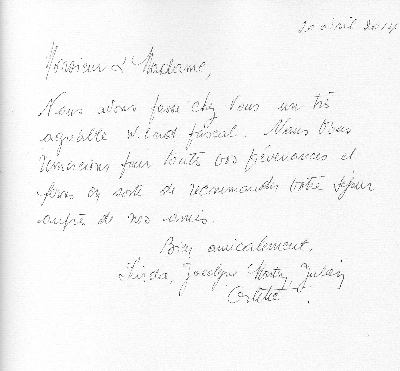 20 avril 2014
Monsieur & Madame,
Nous avons passé chez Vous un très
agréable W.end pascal. Nous Vous
remercions pour toutes vos prévenances et
ferons en sorte de recommander votre séjour
auprès de nos amis.
Bien amicalement,
Jocelyne